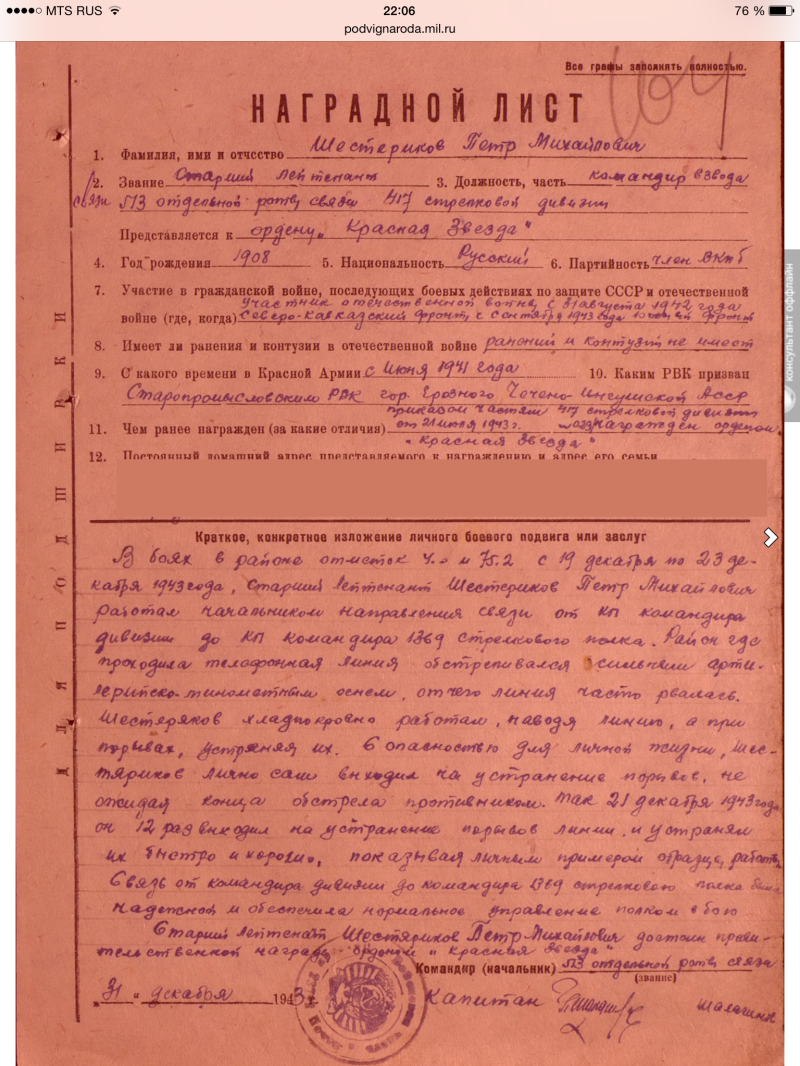 MTS RUS 22:06 76 %
podvignaroda.mil.ru
Все графы заполнять полностью.
164
НАГРАДНОЙ ЛИСТ
1. Фамилия, имя и отчество Шестериков Петр Михайлович
2. Звание Старший лейтенант 3. Должность, часть командир взвода
связи 513 отдельной роты связи 417 стрелковой дивизии
Представляется к ордену „Красная Звезда"
4. Год рождения 1908 5. Национальность Русский 6. Партийность член ВКПб
7. Участие в гражданской войне, последующих боевых действиях по защите СССР и отечественной
участник отечественной войны с 31 августа 1942 года
войне (где, когда) Северо-Кавказский фронт с сентября 1943 года фронт
8. Имеет ли ранения и контузии в отечественной войне ранений и контузий не имеет
9. С какого времени в Красной Армии с Июня 1941 года 10. Каким РВК призван
Старопромысловским РВК гор. Грозного Чечено-Ингушской АССР
приказом частям 417 стрелковой дивизии
11. Чем ранее награжден (за какие отличия) от 21 июля 1943 г. награжден орденом
"Красная Звезда"
12. Постоянный домашний адрес представляемого к награждению и адрес его семьи
Краткое, конкретное изложение личного боевого подвига или заслуг
В боях в районе отметок и 75.2 с 19 декабря по 23 де-
кабря 1943 года, Старший Лейтенант Шестериков Петр Михайлович
работал начальником направления связи от КП командира
дивизии до КП командира 1369 стрелкового полка. Район где
проходила телефонная линия обстреливался сильным арти-
лерийско-минометным огнем, отчего линия часто рвалась.
Шестеряков хладнокровно работал, наводя линию, а при
порывах, устраняя их. С опасностью для личной жизни, Шес-
тяриков лично сам выходил на устранение порывов, не
ожидая конца обстрела противником. Так 21 декабря 1943 года
он 12 раз выходил на устранение порывов линии, и устранял
их быстро и хорошо, показывая личным примером образец работы
Связь от командира дивизии до командира 1369 стрелкового полка была
надежной и обеспечила нормальное управление полком в бою
Старший лейтенант Шестяриков Петр Михайлович достоин прави-
тельственной награды орденом "Красная Звезда"
Командир (начальник) 513 отдельной роты связи
(звание)
„31" декабря 1943 г. Капитан
ДЛЯ ПОДШИВКИ
консультант оффлайн